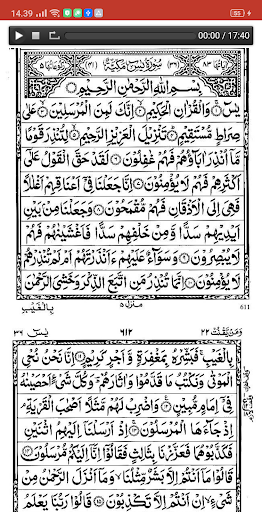 14.39
35%
00:00 / 17:40
اٰیاتها ۸۳ (۳۶) سُوْرَةُ یٰسٓ مَكِّیَّةٌ (۴۱) ركوعاتها ۵
بِسْمِ اللّٰهِ الرَّحْمٰنِ الرَّحِیْمِ
یٰسٓ ۝ وَالْقُرْاٰنِ الْحَكِیْمِ ۝ اِنَّكَ لَمِنَ الْمُرْسَلِیْنَ ۝ عَلٰی
صِرَاطٍ مُّسْتَقِیْمٍ ۝ تَنْزِیْلَ الْعَزِیْزِ الرَّحِیْمِ ۝ لِتُنْذِرَ قَوْمًا
مَّاۤ اُنْذِرَ اٰبَآؤُهُمْ فَهُمْ غٰفِلُوْنَ ۝ لَقَدْ حَقَّ الْقَوْلُ عَلٰۤی
اَكْثَرِهِمْ فَهُمْ لَا یُؤْمِنُوْنَ ۝ اِنَّا جَعَلْنَا فِیْۤ اَعْنَاقِهِمْ اَغْلٰلًا
فَهِیَ اِلَی الْاَذْقَانِ فَهُمْ مُّقْمَحُوْنَ ۝ وَجَعَلْنَا مِنْۢ بَیْنِ
اَیْدِیْهِمْ سَدًّا وَّمِنْ خَلْفِهِمْ سَدًّا فَاَغْشَیْنٰهُمْ فَهُمْ
لَا یُبْصِرُوْنَ ۝ وَسَوَآءٌ عَلَیْهِمْ ءَاَنْذَرْتَهُمْ اَمْ لَمْ تُنْذِرْهُمْ
لَا یُؤْمِنُوْنَ ۝ اِنَّمَا تُنْذِرُ مَنِ اتَّبَعَ الذِّكْرَ وَخَشِیَ الرَّحْمٰنَ
بِالْغَیْبِ
منزل ۵
611
یٰسٓ ۳۶ ۶۱۲ وَمَنْ یَّقْنُتْ ۲۲
بِالْغَیْبِ ۚ فَبَشِّرْهُ بِمَغْفِرَةٍ وَّاَجْرٍ كَرِیْمٍ ۝ اِنَّا نَحْنُ نُحْیِ
الْمَوْتٰی وَنَكْتُبُ مَا قَدَّمُوْا وَاٰثَارَهُمْ ؕ وَكُلَّ شَیْءٍ اَحْصَیْنٰهُ
فِیْۤ اِمَامٍ مُّبِیْنٍ ۝ وَاضْرِبْ لَهُمْ مَّثَلًا اَصْحٰبَ الْقَرْیَةِ ۘ
اِذْ جَآءَهَا الْمُرْسَلُوْنَ ۝ اِذْ اَرْسَلْنَاۤ اِلَیْهِمُ اثْنَیْنِ
فَكَذَّبُوْهُمَا فَعَزَّزْنَا بِثَالِثٍ فَقَالُوْۤا اِنَّاۤ اِلَیْكُمْ مُّرْسَلُوْنَ ۝
قَالُوْا مَاۤ اَنْتُمْ اِلَّا بَشَرٌ مِّثْلُنَا ۙ وَمَاۤ اَنْزَلَ الرَّحْمٰنُ مِنْ
شَیْءٍ ۙ اِنْ اَنْتُمْ اِلَّا تَكْذِبُوْنَ ۝ قَالُوْا رَبُّنَا یَعْلَمُ